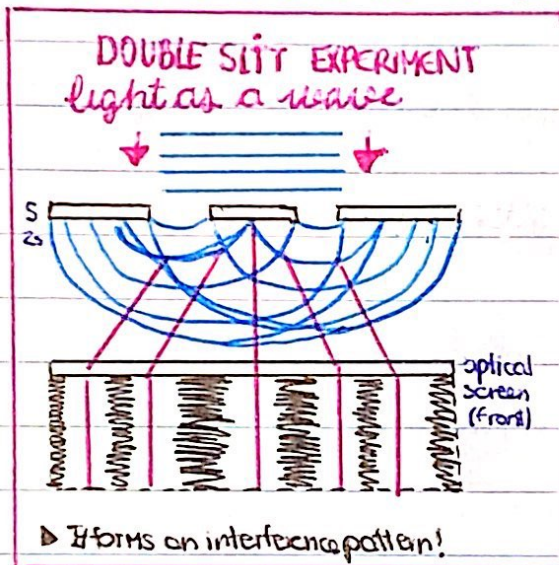 DOUBLE SLIT EXPERIMENT
light as a wave
S
2s
optical
screen
(front)
▷ It forms an interference pattern!